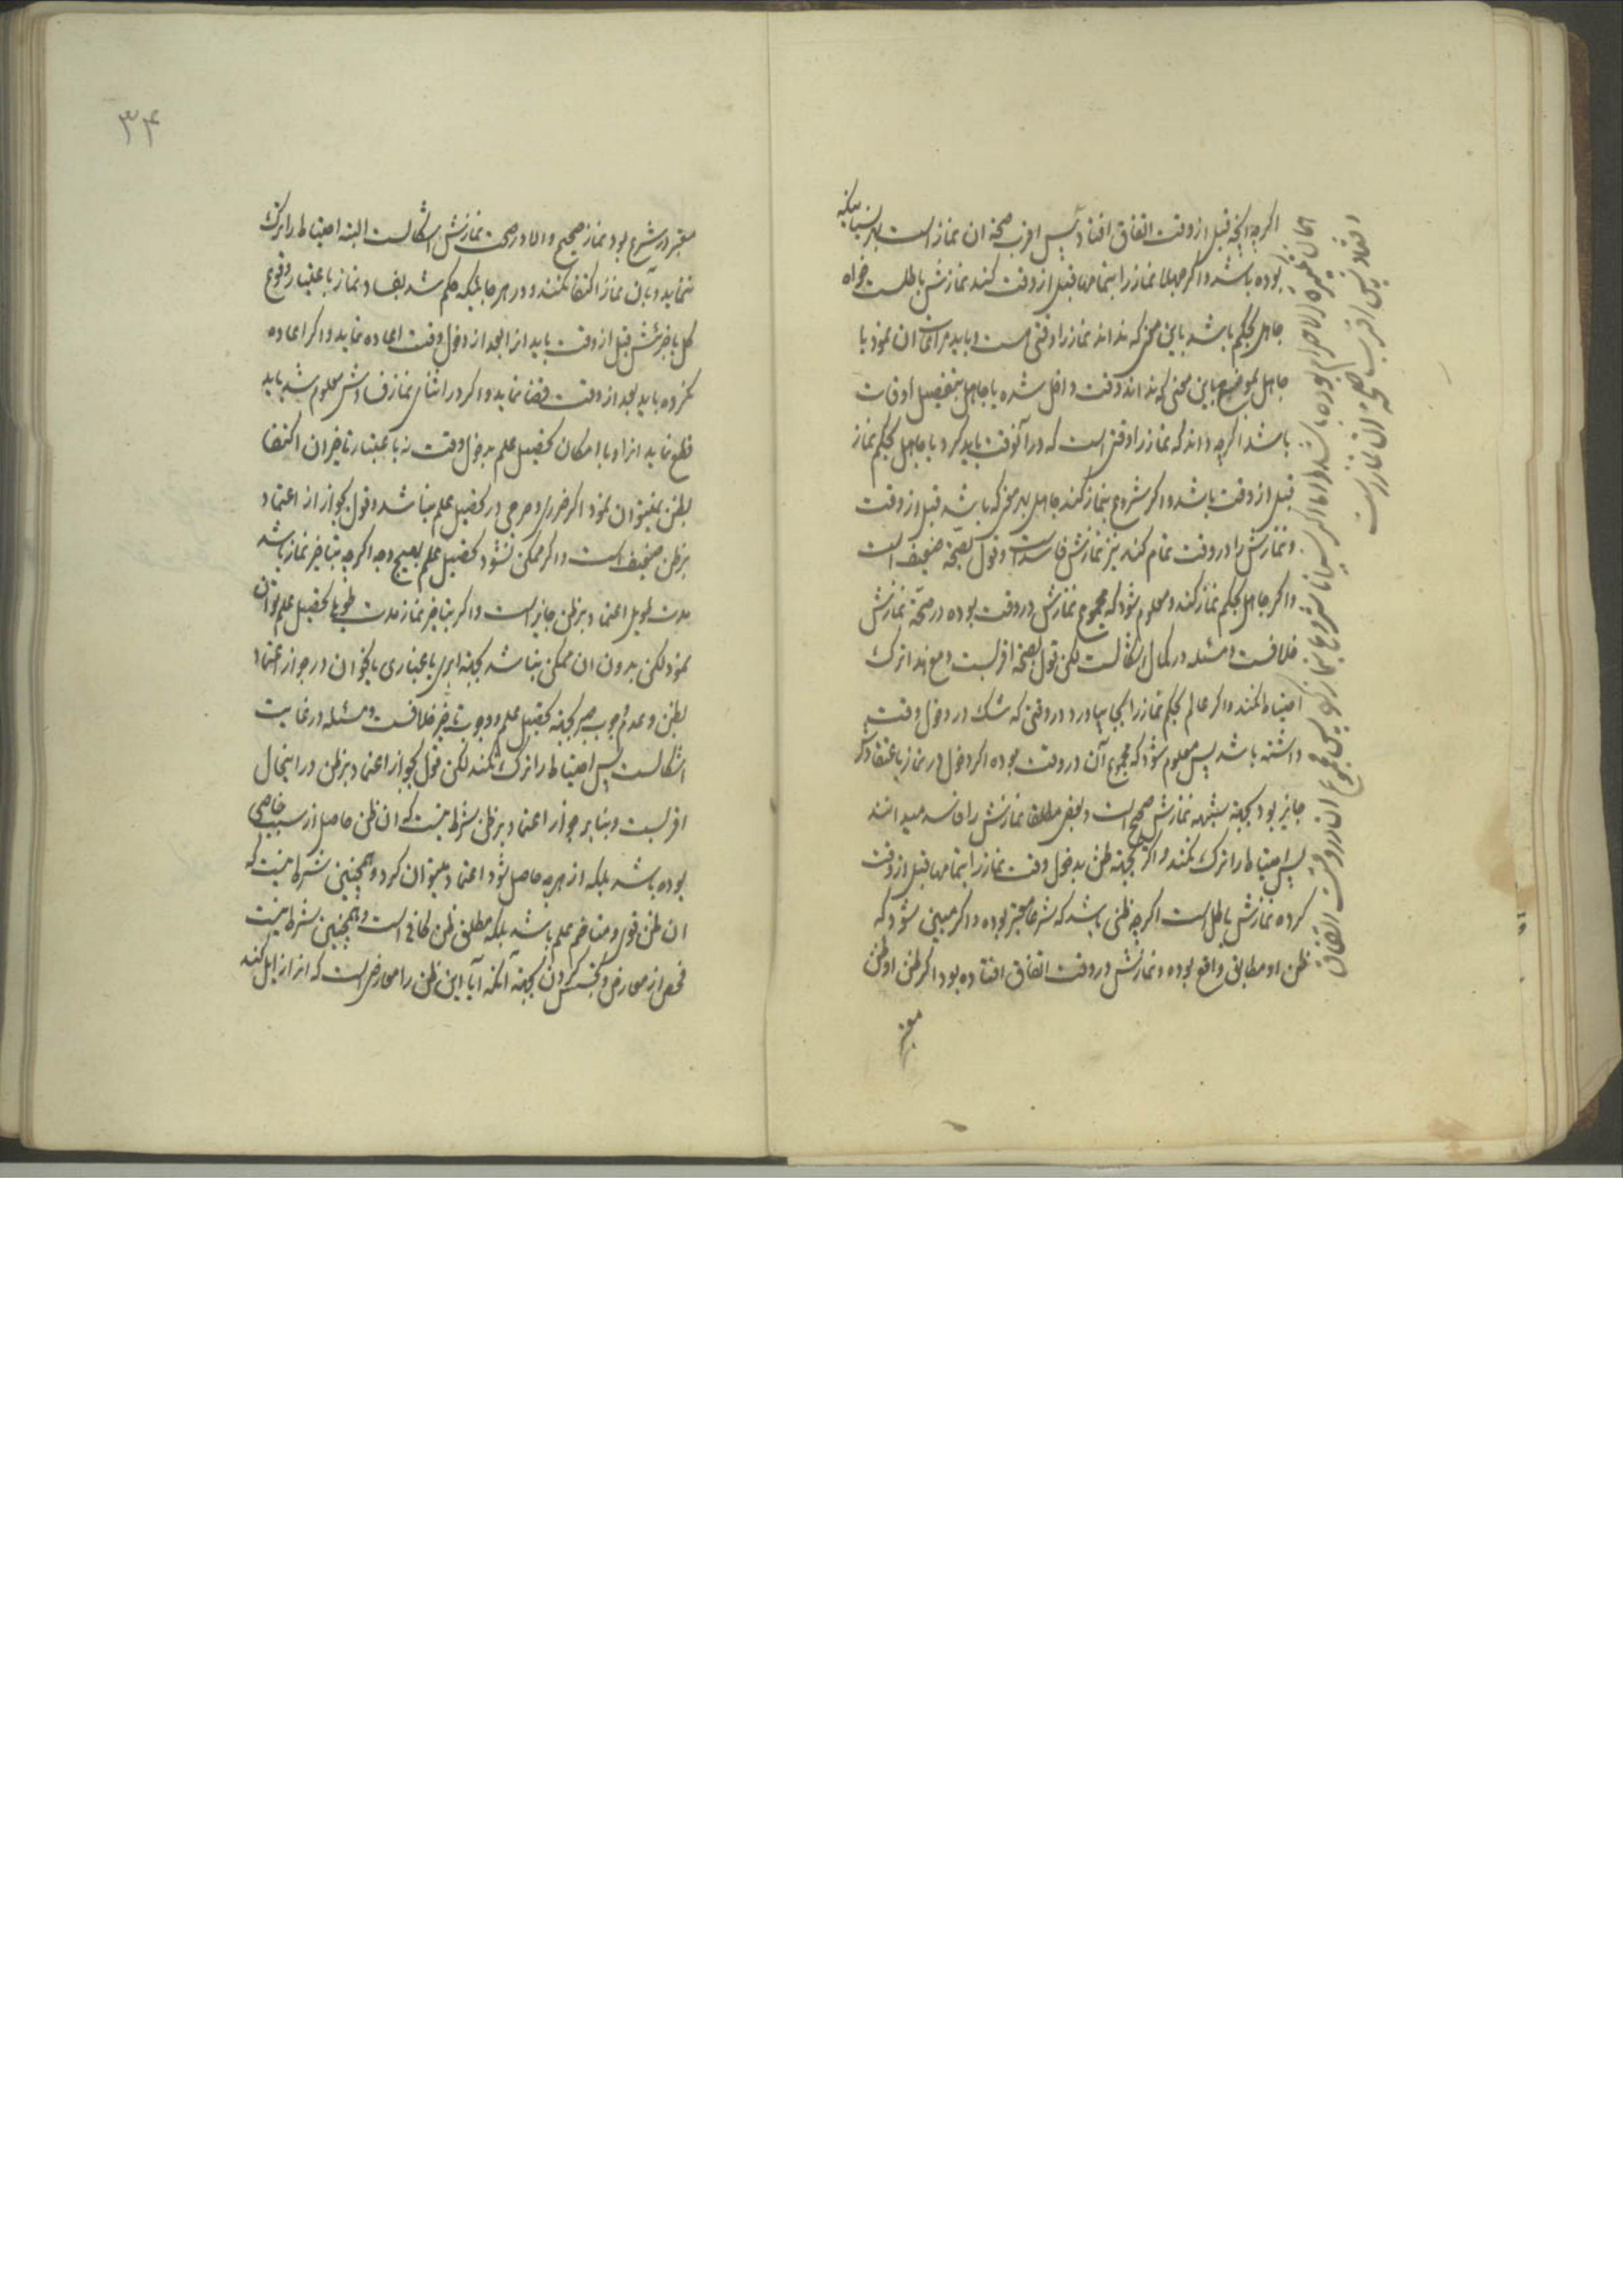 اگرچه انچه قبل از وقت اتفاق افتاد پس اقرب صحة ان نماز است
بوده باشد و اگر جهلا نماز را بتمامها قبل از وقت کند نمازش باطلست خواه
جاهل بحکم باشد باین معنی که نداند نماز را وقتی هست و باید مراعات ان نمود یا
جاهل بموضوع باین معنی که نداند وقت داخل شده یا جاهل بتفصیل اوقات
باشد اگرچه داند که نماز را وقتی است که در آنوقت باید کرد یا جاهل بحکم نماز
قبل از وقت باشد و اگر شروع بنماز کند جاهل بهر معنی که باشد قبل از وقت
و نمازش را در وقت تمام کند نیز نمازش فاسد است و قول بصحة ضعیف است
و اگر جاهل بحکم نماز کند و معلوم شود که مجموع نمازش در وقت بوده در صحة نمازش
خلافست و مسئله در کمال اشکالست لکن قول بصحة اقربست و مع هذا ترک
احتیاط نکند و اگر عالم بحکم نماز را بجا بیاورد در وقتی که شک در دخول وقت
داشته باشد پس معلوم شود که مجموع آن در وقت بوده اگر دخول در نماز باعتقاد
جایز بود بجهة شبهه نمازش صحیح است و بعض مطلقا نمازش را فاسد میدانند
پس احتیاط را ترک نکند و اگر بجهة ظن بدخول وقت نماز را بتمامها قبل از وقت
کرده نمازش باطل است اگرچه ظنی باشد که شرعا معتبر بوده و اگر مبین شود که
ظن او مطابق واقع بوده و نمازش در وقت اتفاق افتاده بود اگر ظن او ظن
معتبر
بوده باشد و اما اگر نسیانا شروع بنماز کرد پس مجموع ان در وقت اتفاق
افتاد پس اقرب صحة ان نماز است
۳۴
معتبر در شرع بود نماز صحیح و الا در صحت نمازش اشکالست البته احتیاط را ترک
ننماید و بآن نماز اکتفا نکند و در هر جا بلکه حکم شد بفساد نماز باعتبار وقوع
کل یا جزئش قبل از وقت باید انرا بعد از دخول وقت اعاده نماید و اگر اعاده
نکرده باید بعد از وقت قضا نماید و اگر در اثنای نماز فسادش معلوم شد باید
قطع نماید انرا و با امکان تحصیل علم بدخول وقت نه باعتبار تاخیر ان اکتفا
بظن نمیتوان نمود اگر ضرری و حرجی در تحصیل علم نباشد و قول بجواز از اعتماد
بر ظن ضعیف است و اگر ممکن نشود تحصیل علم بهیچ وجه اگرچه بتاخیر نماز باشد
مدت طویل اعتماد بر ظن جایز است و اگر بتاخیر نماز مدت طویل تحصیل علم توان
نمود لکن بدون ان ممکن نباشد بجهة ابری یا غباری یا نحو ان در جواز اعتماد
بظن و عدم وجوب صبر بجهة تحصیل علم و وجوب تاخیر خلافست و مسئله در غایت
اشکالست پس احتیاط را ترک نکند لکن قول بجواز اعتماد بر ظن در اینحال
اقربست و بنابر جواز اعتماد بر ظن شرط نیست که ان ظن حاصل از سبب خاصی
بوده باشد بلکه از هرچه حاصل شود اعتماد میتوان کرد و همچنین شرط نیست که
ان ظن قوی و متاخم علم باشد بلکه مطلق ظن کافی است و همچنین شرط نیست
فحص از معارض و تجسس کردن بجهة آنکه آیا این ظن را معارض است که انرا زایل کند